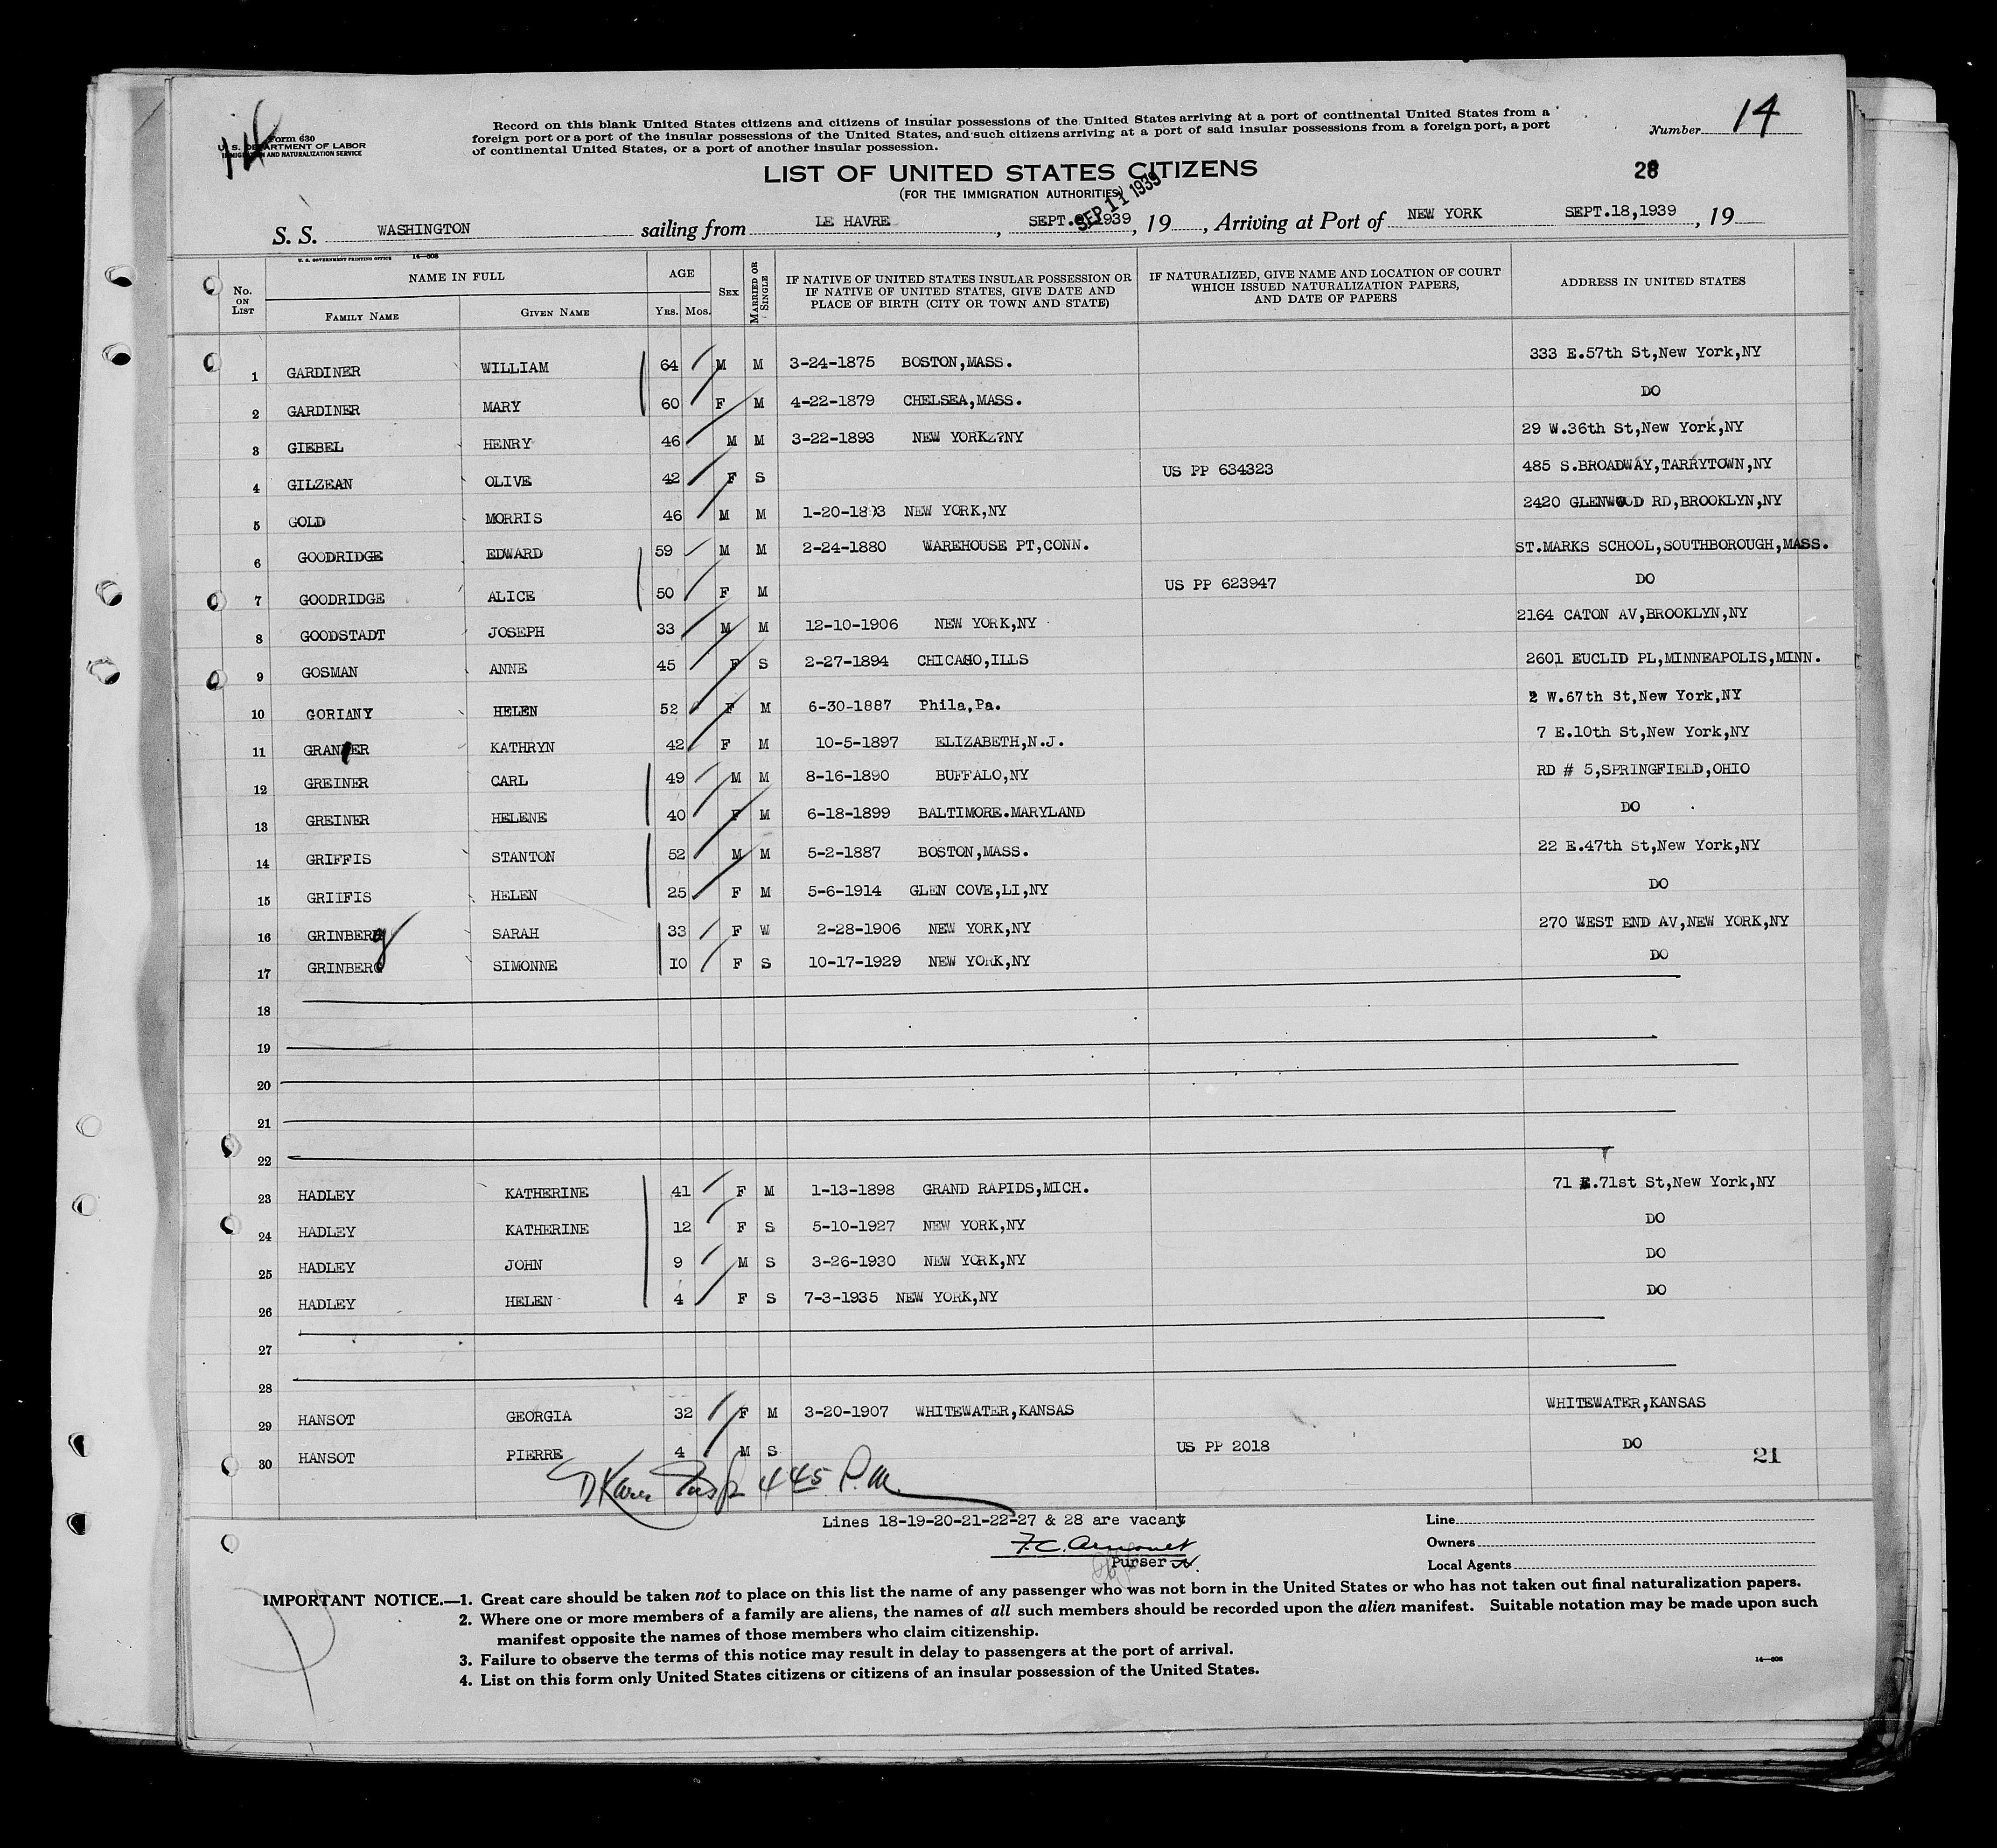 Form 630
U. S. DEPARTMENT OF LABOR
IMMIGRATION AND NATURALIZATION SERVICE
Record on this blank United States citizens and citizens of insular possessions of the United States arriving at a port of continental United States from a
foreign port or a port of the insular possessions of the United States, and such citizens arriving at a port of said insular possessions from a foreign port, a port
of continental United States, or a port of another insular possession.
Number 14
LIST OF UNITED STATES CITIZENS
(FOR THE IMMIGRATION AUTHORITIES)
28
SEP 11 1939
S. S. WASHINGTON sailing from LE HAVRE, SEPT. 1939, 19, Arriving at Port of NEW YORK SEPT.18,1939, 19
U. S. GOVERNMENT PRINTING OFFICE 14—608
No. ON LIST NAME IN FULL AGE SEX MARRIED OR SINGLE IF NATIVE OF UNITED STATES INSULAR POSSESSION OR IF NATIVE OF UNITED STATES, GIVE DATE AND PLACE OF BIRTH (CITY OR TOWN AND STATE) IF NATURALIZED, GIVE NAME AND LOCATION OF COURT WHICH ISSUED NATURALIZATION PAPERS, AND DATE OF PAPERS ADDRESS IN UNITED STATES
FAMILY NAME GIVEN NAME YRS. MOS.
1 GARDINER WILLIAM 64 M M 3-24-1875 BOSTON,MASS. 333 E.57th St,New York,NY
2 GARDINER MARY 60 F M 4-22-1879 CHELSEA,MASS. DO
3 GIEBEL HENRY 46 M M 3-22-1893 NEW YORKz?NY 29 W.36th St,New York,NY
4 GILZEAN OLIVE 42 F S US PP 634323 485 S.BROADWAY,TARRYTOWN,NY
5 GOLD MORRIS 46 M M 1-20-1893 NEW YORK,NY 2420 GLENWOOD RD,BROOKLYN,NY
6 GOODRIDGE EDWARD 59 M M 2-24-1880 WAREHOUSE PT,CONN. ST.MARKS SCHOOL,SOUTHBOROUGH,MASS.
7 GOODRIDGE ALICE 50 F M US PP 623947 DO
8 GOODSTADT JOSEPH 33 M M 12-10-1906 NEW YORK,NY 2164 CATON AV,BROOKLYN,NY
9 GOSMAN ANNE 45 F S 2-27-1894 CHICAGO,ILLS 2601 EUCLID PL,MINNEAPOLIS,MINN.
10 GORIANY HELEN 52 F M 6-30-1887 Phila,Pa. 2 W.67th St,New York,NY
11 KATHRYN 42 F M 10-5-1897 ELIZABETH,N.J. 7 E.10th St,New York,NY
12 GREINER CARL 49 M M 8-16-1890 BUFFALO,NY RD # 5,SPRINGFIELD,OHIO
13 GREINER HELENE 40 F M 6-18-1899 BALTIMORE.MARYLAND DO
14 GRIFFIS STANTON 52 M M 5-2-1887 BOSTON,MASS. 22 E.47th St,New York,NY
15 GRIIFIS HELEN 25 F M 5-6-1914 GLEN COVE,LI,NY DO
16 GRINBERg SARAH 33 F W 2-28-1906 NEW YORK,NY 270 WEST END AV,NEW YORK,NY
17 GRINBERG SIMONNE 10 F S 10-17-1929 NEW YORK,NY DO
18
19
20
21
22
23 HADLEY KATHERINE 41 F M 1-13-1898 GRAND RAPIDS,MICH. 71 E.71st St,New York,NY
24 HADLEY KATHERINE 12 F S 5-10-1927 NEW YORK,NY DO
25 HADLEY JOHN 9 M S 3-26-1930 NEW YORK,NY DO
26 HADLEY HELEN 4 F S 7-3-1935 NEW YORK,NY DO
27
28
29 HANSOT GEORGIA 32 F M 3-20-1907 WHITEWATER,KANSAS WHITEWATER,KANSAS
30 HANSOT PIERRE 4 M S US PP 2018 DO
21
445 P.M.
Lines 18-19-20-21-22-27 & 28 are vacant
F.C.
Purser
Line
Owners
Local Agents
IMPORTANT NOTICE.—1. Great care should be taken not to place on this list the name of any passenger who was not born in the United States or who has not taken out final naturalization papers.
2. Where one or more members of a family are aliens, the names of all such members should be recorded upon the alien manifest. Suitable notation may be made upon such
manifest opposite the names of those members who claim citizenship.
3. Failure to observe the terms of this notice may result in delay to passengers at the port of arrival.
4. List on this form only United States citizens or citizens of an insular possession of the United States.
14—608